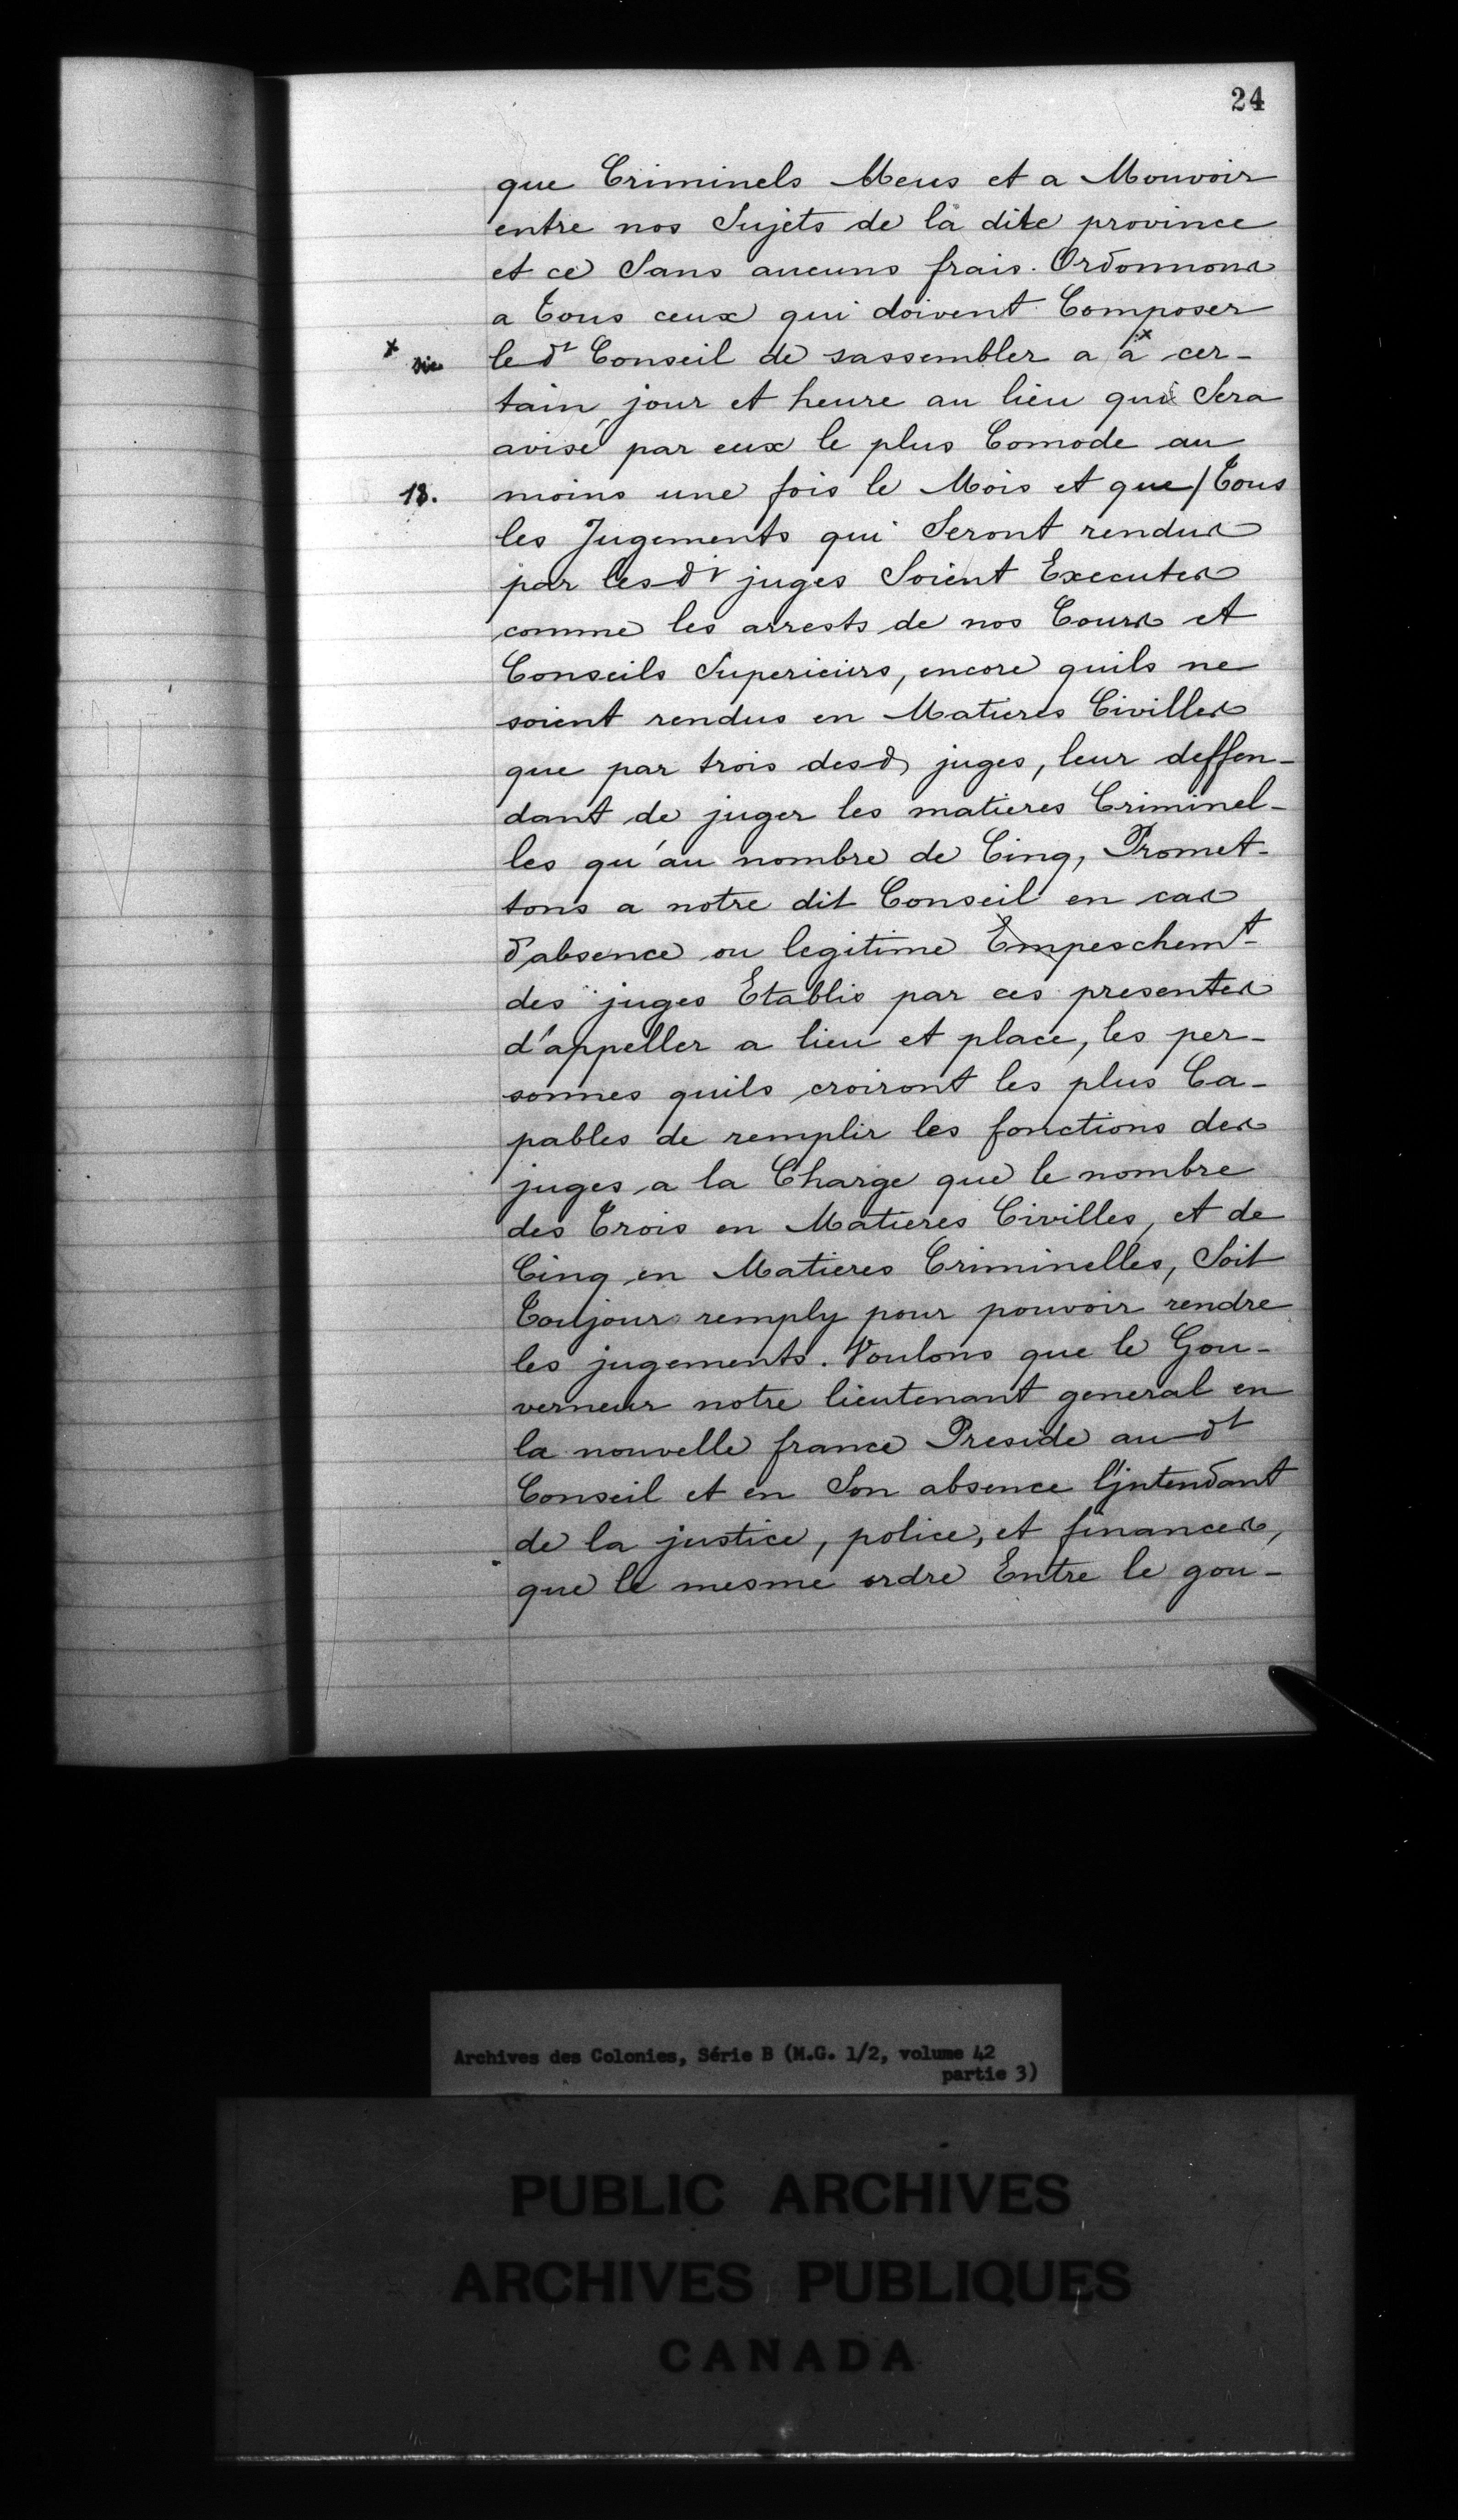 24
que Criminels Meus et a Mouvoir
entre nos Sujets de la dite province
et ce Sans aucuns frais. Ordonnons
a Tous ceux qui doivent Composer
x sic le dt Conseil de sassembler a a x cer-
tain jour et heure au lieu qui Sera
avisé par eux le plus Comode au
18. moins une fois le Mois et que / Tous
les Jugements qui Seront rendus
par les dt juges Soient Executes
comme les arrests de nos Cours et
Conseils Superieurs, encore quils ne
soient rendus en Matieres Civilles
que par trois desd juges, leur deffen-
dant de juger les matieres Criminel-
les qu'au nombre de Cinq, Promet-
tons a notre dit Conseil en cas
d'absence ou legitime Empeschemt
des juges Etablis par ces presentes
d'appeller a lieu et place, les per-
sonnes quils croiront les plus Ca-
pables de remplir les fonctions des
juges a la Charge que le nombre
des Trois en Matieres Civilles, et de
Cinq en Matieres Criminelles, Soit
Toujours remply pour pouvoir rendre
les jugements. Voulons que le Gou-
verneur notre lieutenant general en
la nouvelle france Preside au dt
Conseil et en Son absence l'jntendant
de la justice, police, et finances,
que le mesme ordre Entre le gou-
Archives des Colonies, Série B (M.G. 1/2, volume 42
partie 3)
PUBLIC ARCHIVES
ARCHIVES PUBLIQUES
CANADA